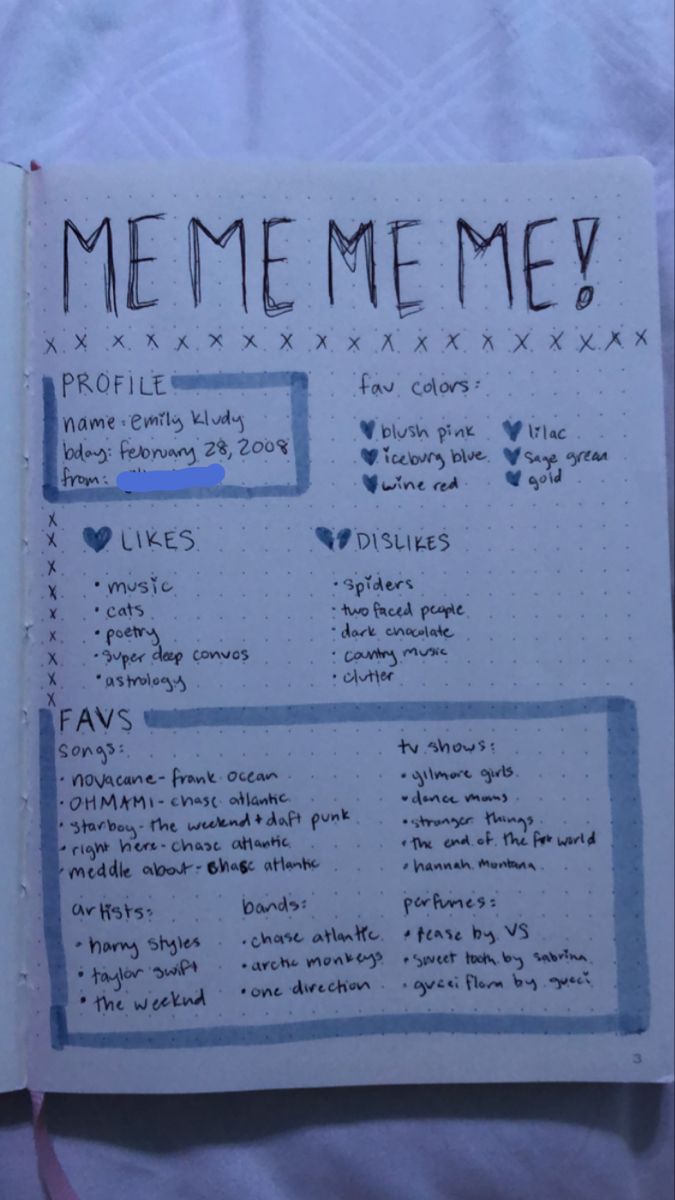 ME ME ME ME!
x x x x x x x x x x x x x x x x x x x
PROFILE
name: emily kludy
bday: february 28, 2008
from:
fav colors:
blush pink
iceburg blue
wine red
lilac
sage green
gold
x
x
x
x
x
x
x
x
LIKES
• music
• cats
• poetry
• super deep convos
• astrology
DISLIKES
• spiders
• two faced people
• dark chocolate
• country music
• clutter
FAVS
songs:
• novacane - frank ocean
• OHMAMI - chase atlantic
• starboy - the weeknd + daft punk
• right here - chase atlantic
• meddle about - chase atlantic
tv shows:
• gilmore girls
• dance moms
• stranger things
• the end of the world
• hannah montana
artists:
• harry styles
• taylor swift
• the weeknd
bands:
• chase atlantic
• arctic monkeys
• one direction
perfumes:
• tease by VS
• sweet tooth by sabrina
• gucci flora by gucci
3